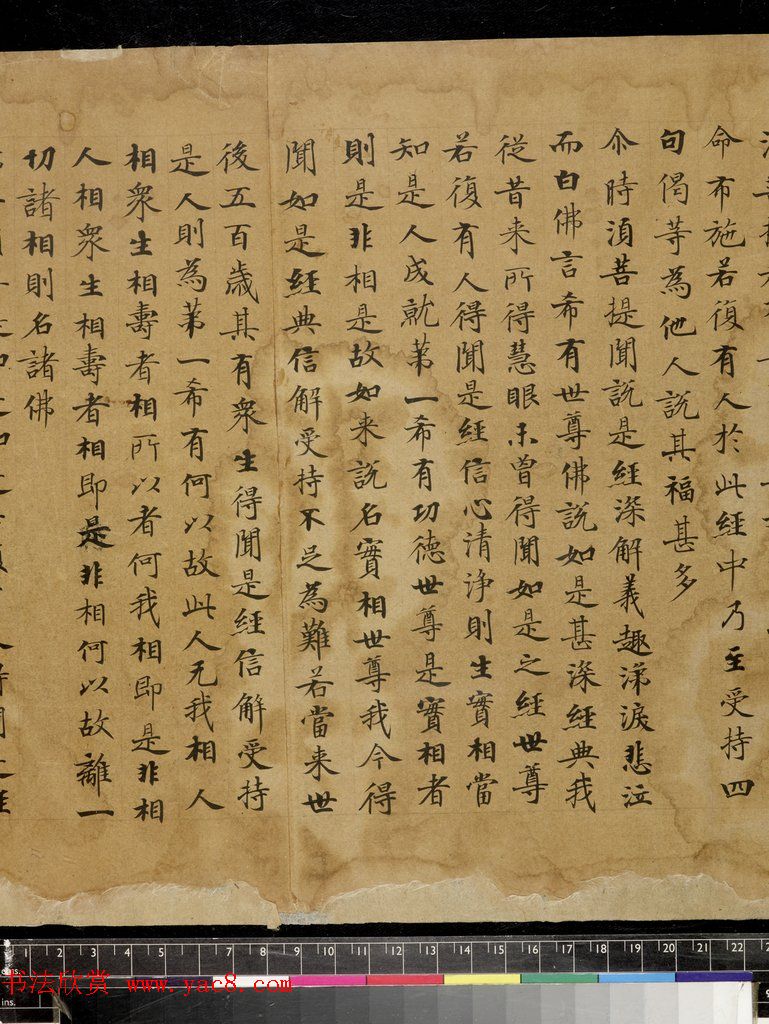 命布施若復有人於此經中乃至受持四
句偈等為他人說其福甚多
尒時湏菩提聞說是經深解義趣涕淚悲泣
而白佛言希有世尊佛說如是甚深經典我
從昔来所得慧眼未曾得聞如是之經世尊
若復有人得聞是經信心清淨則生實相當
知是人成就苐一希有功德世尊是實相者
則是非相是故如来說名實相世尊我今得
聞如是經典信解受持不足為難若當来世
後五百歲其有衆生得聞是經信解受持
是人則為苐一希有何以故此人无我相人
相衆生相壽者相所以者何我相即是非相
人相衆生相壽者相即是非相何以故離一
切諸相則名諸佛
1 2 3 4 5 7 8 9 10 11 12 13 14 15 16 17 18 19 20 21 22
cms.
书法欣赏 www.yac8.com
ins.